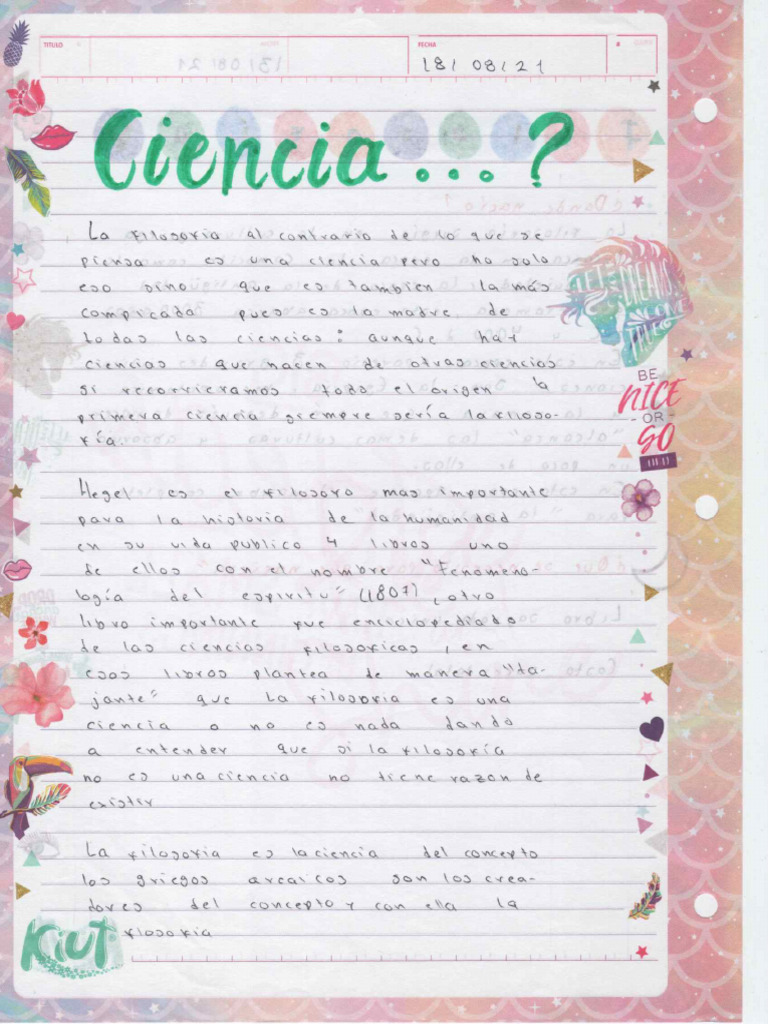 TITULO
FECHA
#
18/ 08/ 21
Ciencia...?
La filosofia al contrario de lo que se
piensa es una ciencia pero no solo
eso sino que es tambien la más
complicada pues es la madre de
todas las ciencias: aunque hay
ciencias que nacen de otras ciencias
si recorrieramos todo el origen la
primera ciencia siempre sería la filoso-
fía.
Hegel es el filosofo mas importante
para la historia de la humanidad
en su vida publico 4 libros uno
de ellos con el nombre "Fenomeno-
logía del espiritu" (1807), otro
libro importante fue enciclopediado
de las ciencias filosoficas, en
esos libros plantea de manera "ta-
jante" que la filosofia es una
ciencia o no es nada dando
a entender que si la filosofía
no es una ciencia no tiene razon de
existir
La filosofia es la ciencia del concepto
los griegos arcaicos son los crea-
dores del concepto y con ella la
filosofia
BE
NICE
-OR-
GO
Kiut